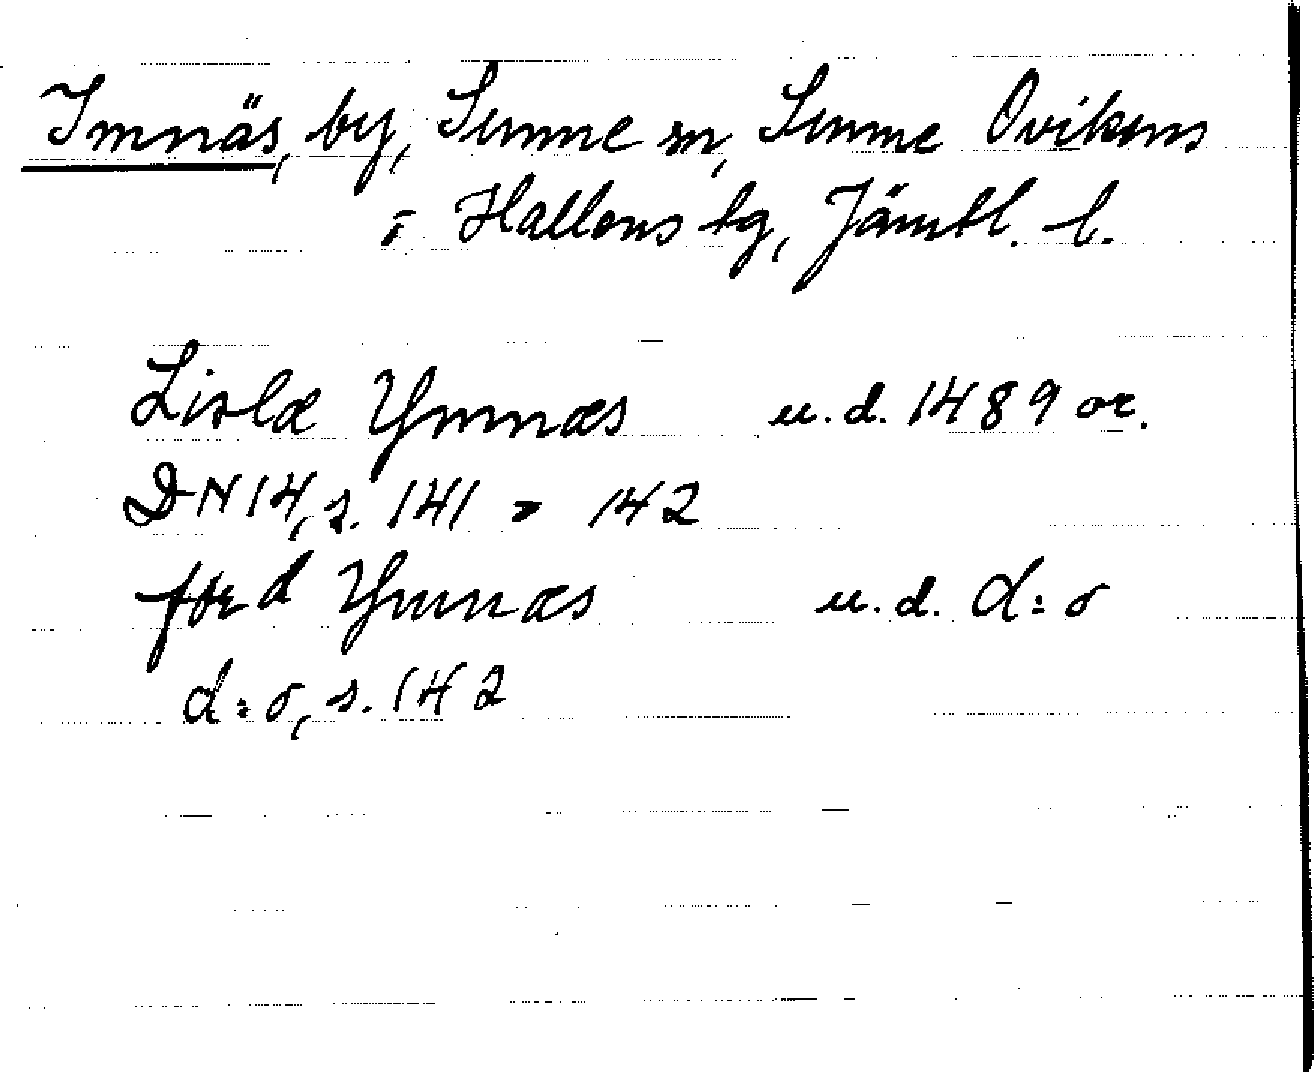 Imnäs, by, Sunne sn, Sunne Ovikens
o Hallens tg, Jämtl. l.
Lisla Ymnæs u.d. 1489 or.
DN 14, s. 141 > 142
ffæ d Ymnæs u.d. d:o
d:o, s. 142